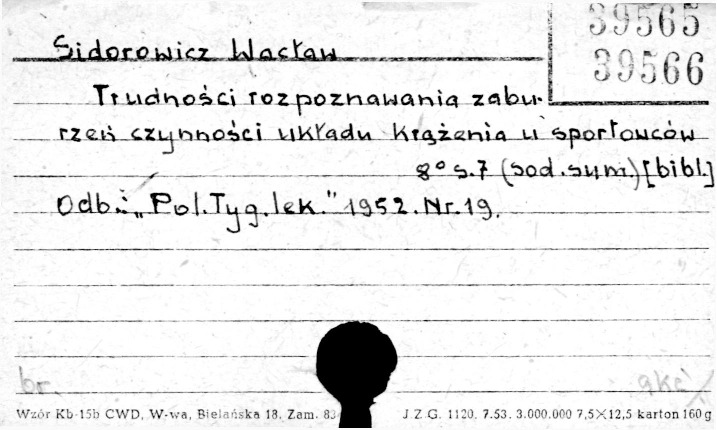 39565
39566
Sidorowicz Wacław
Trudności rozpoznawania zabu-
rzeń czynności układu krążenia u sportowców
8° s.7 (sod.sum.) [bibl.]
Odb.: „Pol.Tyg.lek." 1952. Nr.19.
br. akc
Wzór Kb-15b CWD, W-wa, Bielańska 18. Zam. 83 J.Z.G. 1120. 7.53. 3.000.000 7,5×12,5 karton 160 g